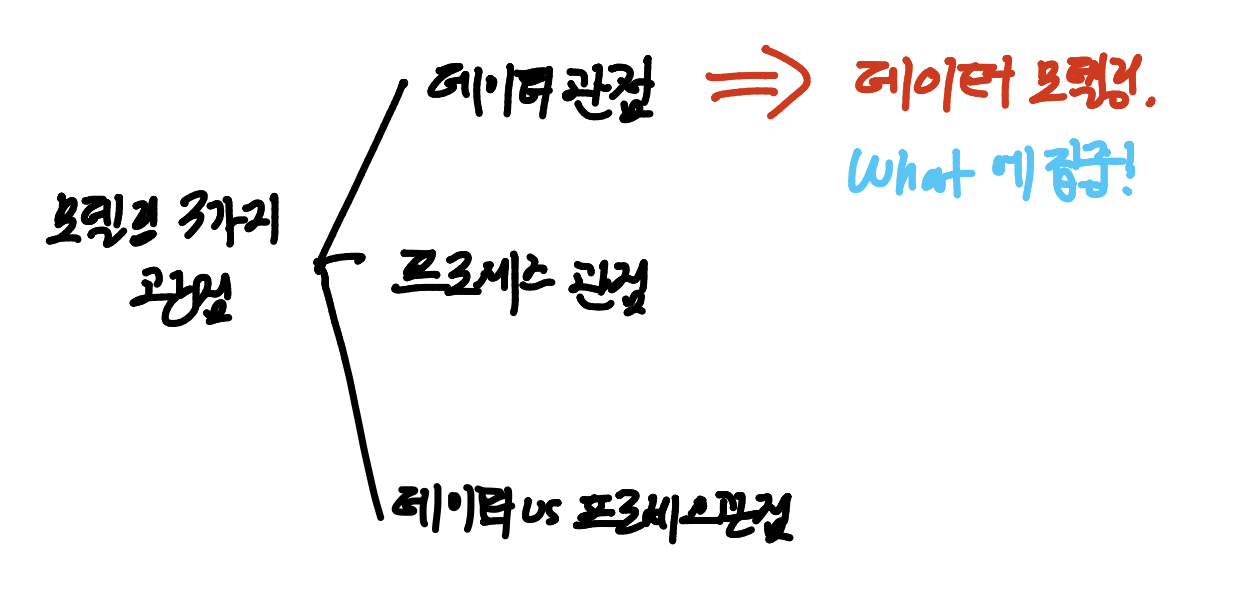 모델의 3가지
관점
데이터 관점 ⇒ 데이터 모델링.
What 에 집중!
프로세스 관점
데이터 vs 프로세스관점